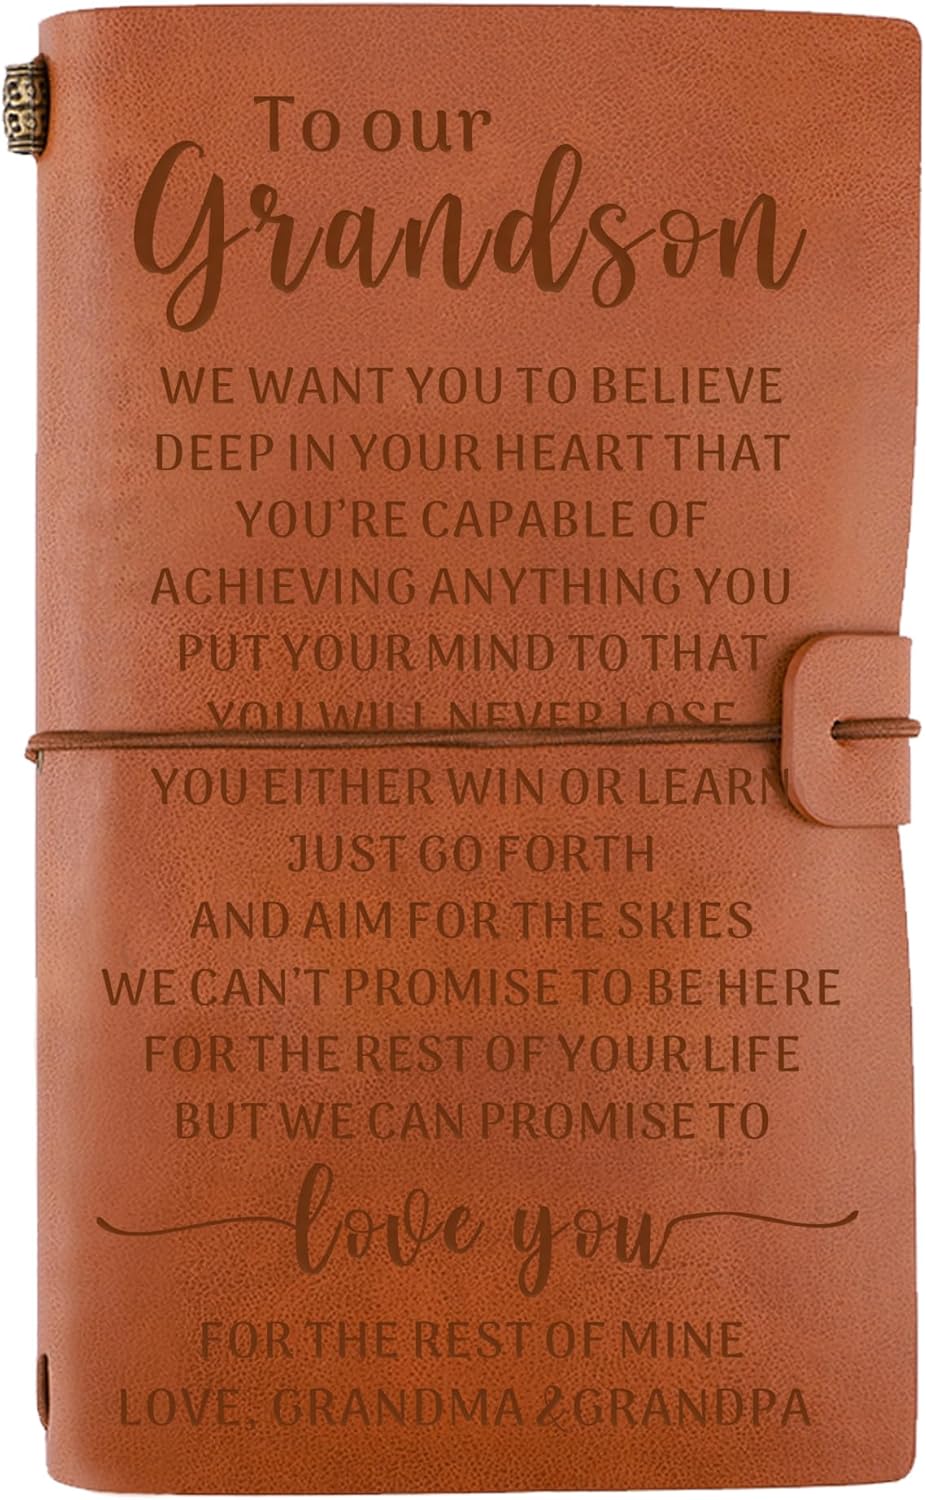 To our
Grandson
WE WANT YOU TO BELIEVE
DEEP IN YOUR HEART THAT
YOU'RE CAPABLE OF
ACHIEVING ANYTHING YOU
PUT YOUR MIND TO THAT
YOU WILL NEVER LOSE
YOU EITHER WIN OR LEARN
JUST GO FORTH
AND AIM FOR THE SKIES
WE CAN'T PROMISE TO BE HERE
FOR THE REST OF YOUR LIFE
BUT WE CAN PROMISE TO
love you
FOR THE REST OF MINE
LOVE, GRANDMA &GRANDPA